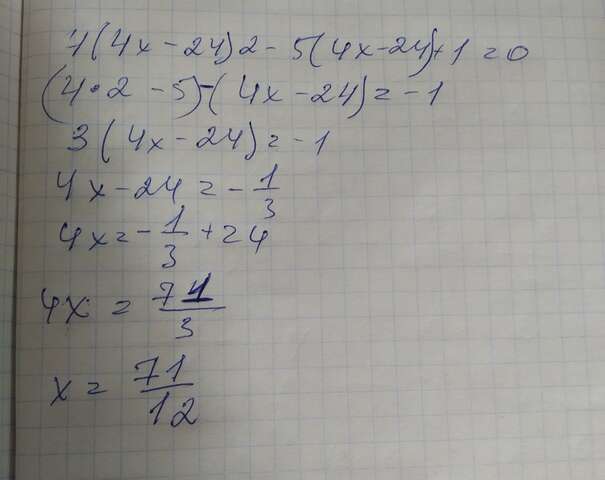 4(4x-24)2-5(4x-24)+1=0
(4·2-5)-(4x-24)=-1
3(4x-24)=-1
4x-24=-1/3
4x=-1/3+24
4x=71/3
x=71/12